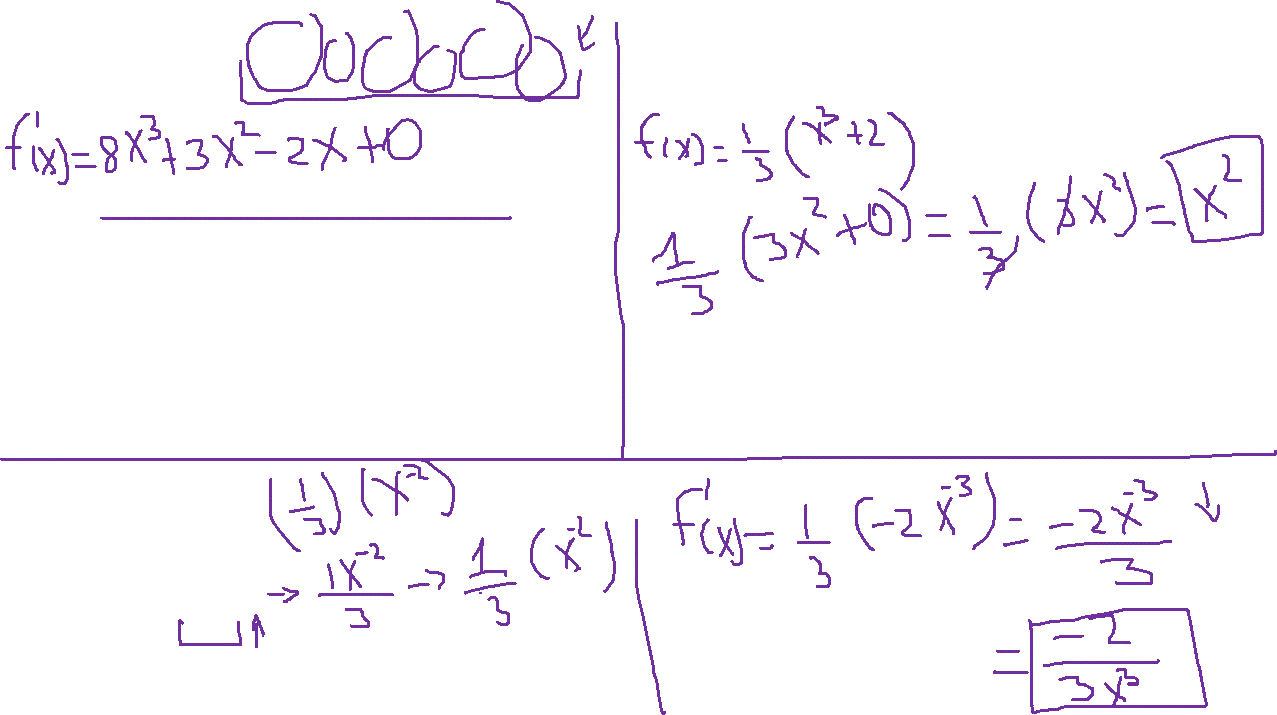 f'(x)=8x³+3x²-2x+0
f(x)=1/3(x³+2)
1/3(3x²+0)=1/3(3x²)=x²
(1/3)(x⁻²)
→1x⁻²/3→1/3(x⁻²)
f'(x)=1/3(-2x⁻³)=-2x⁻³/3↓
=-2/3x³